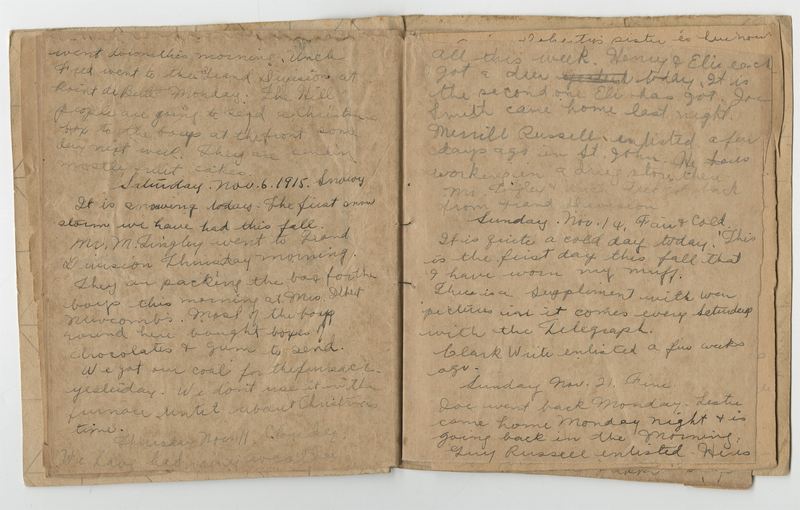 went down this morning. Uncle
Fred went to the Grand Division at
Point de Bute Monday. The Hill
people are going to send a Christmas
box to the boys at the front some
day next week. They are sendin
mostly fruit cakes.
Saturday. Nov. 6. 1915. Snowy
It is snowing today. The first snow
storm we have had this fall.
Mr. M. Tingley went to Grand
Division Thursday morning.
They are packing the box for the
boys this morning at Mrs. Albert
Newcombs. Most of the boys
round here bought boxes of
chocolates & gum to send.
We got our coal for the furnace
yesterday. We don't use it in the
furnace until about Christmas
time.
Thursday Nov. 11.
We have had
sister is
all this week. Henry & Eli each
got a deer today. It is
the second one Eli has got. Joe
Smith came home last night.
Merrill Russell enlisted a few
days ago in St. John. He was
working in a drug store there
Mr. Tingley got back
from Grand Division
Sunday. Nov. 14, Fair & Cold
It is quite a cold day today. This
is the first day this fall that
I have worn my muff.
There is a Suppliment with war
pictures in it comes every Saturday
with the Telegraph.
Clark Write enlisted a few weeks
ago.
Sunday Nov. 21. Fine
Joe went back Monday. Lester
came home Monday night & is
going back in the Morning.
Guy Russell enlisted. He is